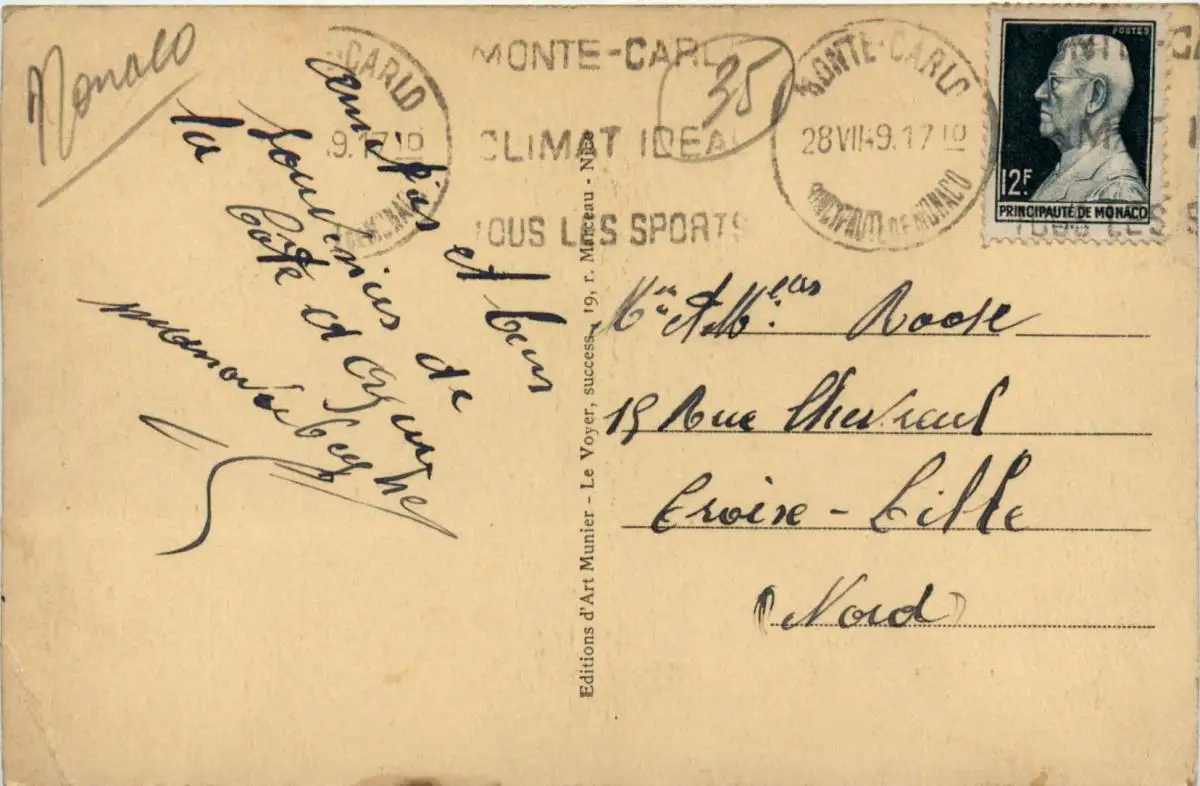 Monaco
35
-CARLO
.9.17 10
MONTE-CARLO
CLIMAT IDEAL
TOUS LES SPORTS
MONTE-CARLO
28 VII 49.17 10
PRINCIPAUTÉ DE MONACO
POSTES
12F
PRINCIPAUTÉ DE MONACO
et bons
souvenirs de
la Côte d'Azur
Editions d'Art Munier - Le Voyer, success., 19, r. Marceau - Nice
Roose
19 Rue Chevreul
Croise - Lille
(Nord)